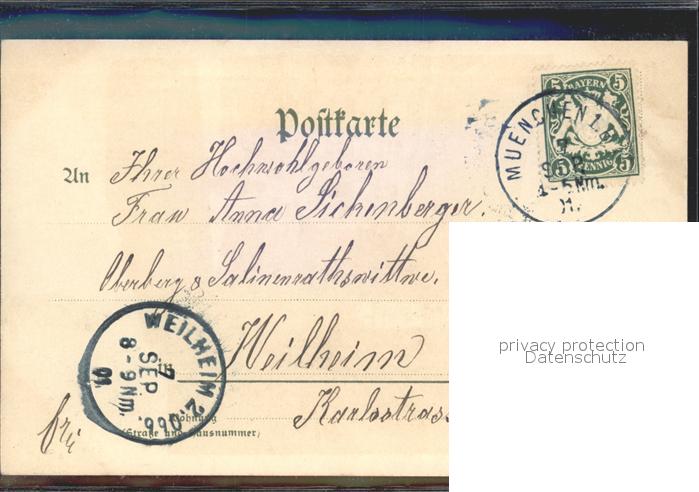 5 BAYERN 5
5 PFENNIG 5
MUENCHEN 1. B.
7
SEP
4-5 Nm.
01.
Postkarte
An Ihrer Hochwohlgeboren
Frau Anna Sichenberger.
Oberberg & Salinenrathswittwe.
Weilheim
Karlsstrass
WEILHEIM 2. Obb.
7
SEP
8-9 Nm.
01.
Wohnung
(Straße und Hausnummer)
privacy protection
Datenschutz